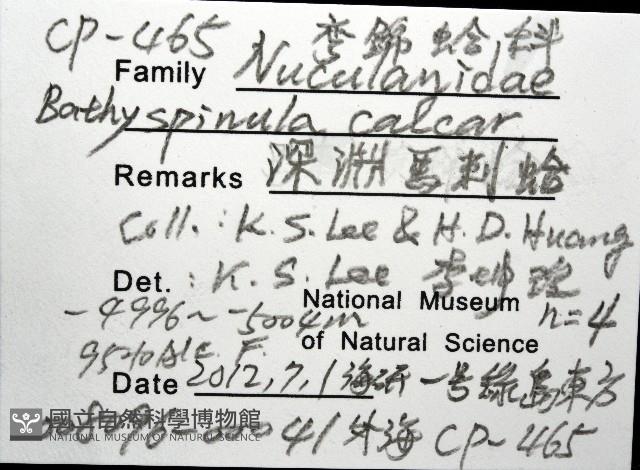 CP-465 彎錦蛤科
Family Nuculanidae
Bathyspinula calcar
Remarks 深淵馬刺蛤
Coll.: K. S. Lee & H. D. Huang
Det.: K. S. Lee 李
National Museum n=4
-4996~-5004m
of Natural Science
95% Alc. F.
Date 2012,7,1 海研一号綠島東方
41 外海 CP-465
國立自然科學博物館
NATIONAL MUSEUM OF NATURAL SCIENCE